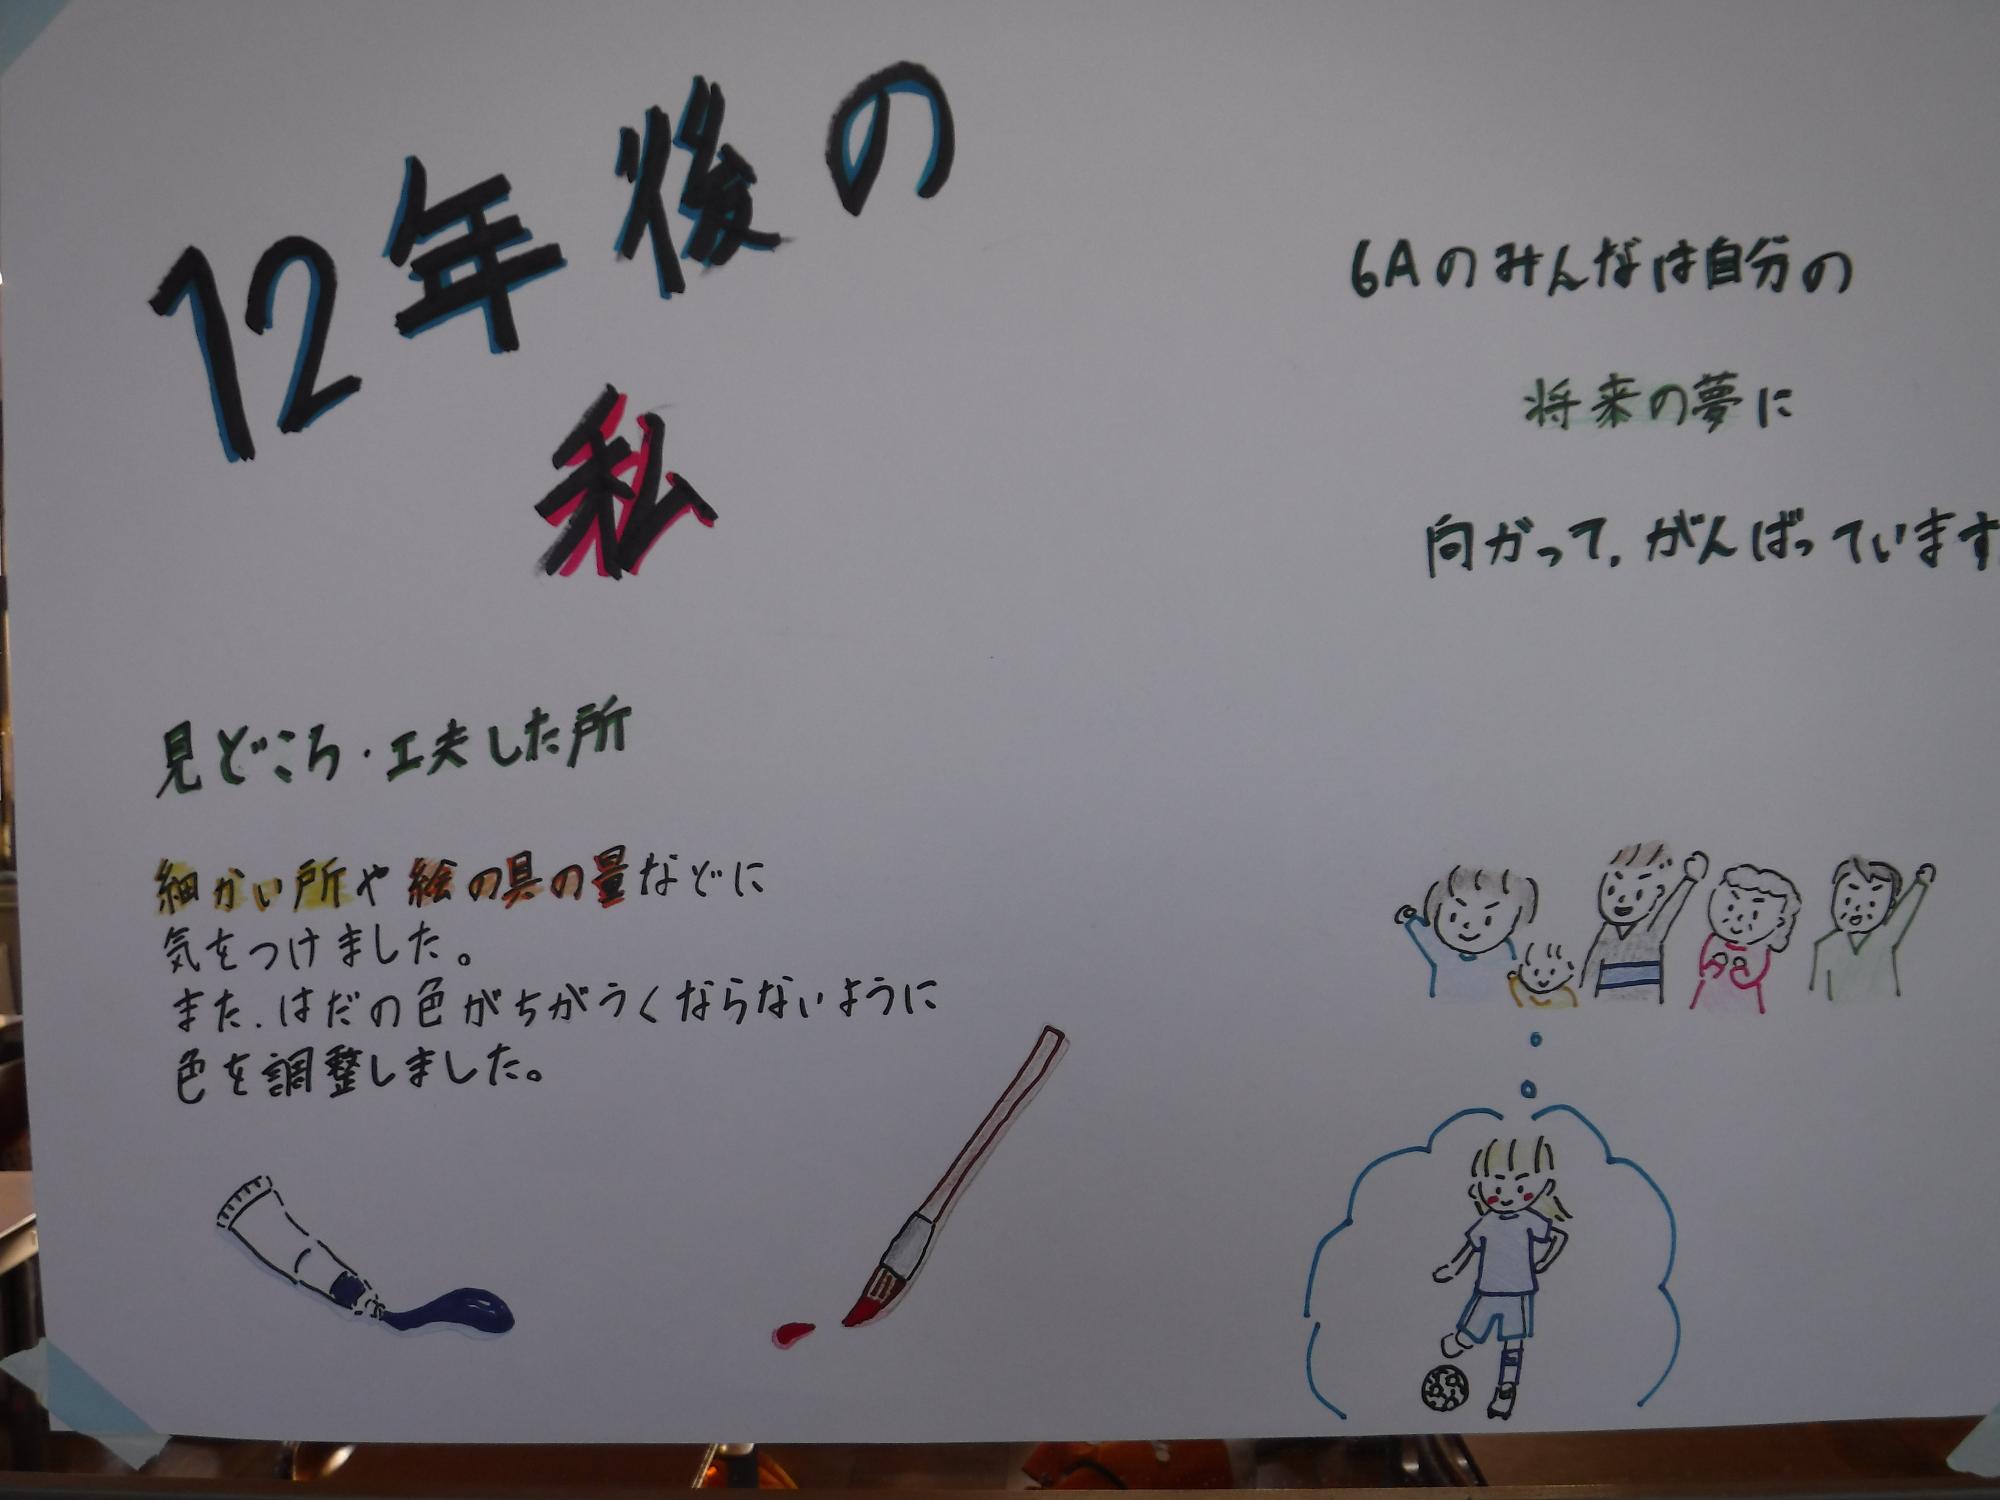 12年後の
私
見どころ・工夫した所
細かい所や絵の具の量などに
気をつけました。
また、はだの色がちがうくならないように
色を調整しました。
6Aのみんなは自分の
将来の夢に
向がって、がんばっています